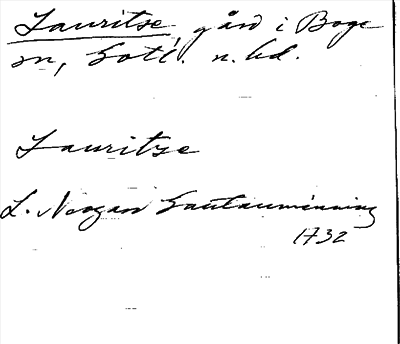 Lauritse, gård i Boge
sn, Gotl. n. hd.
Lauritse
L. Norgan Gautauminning
1732